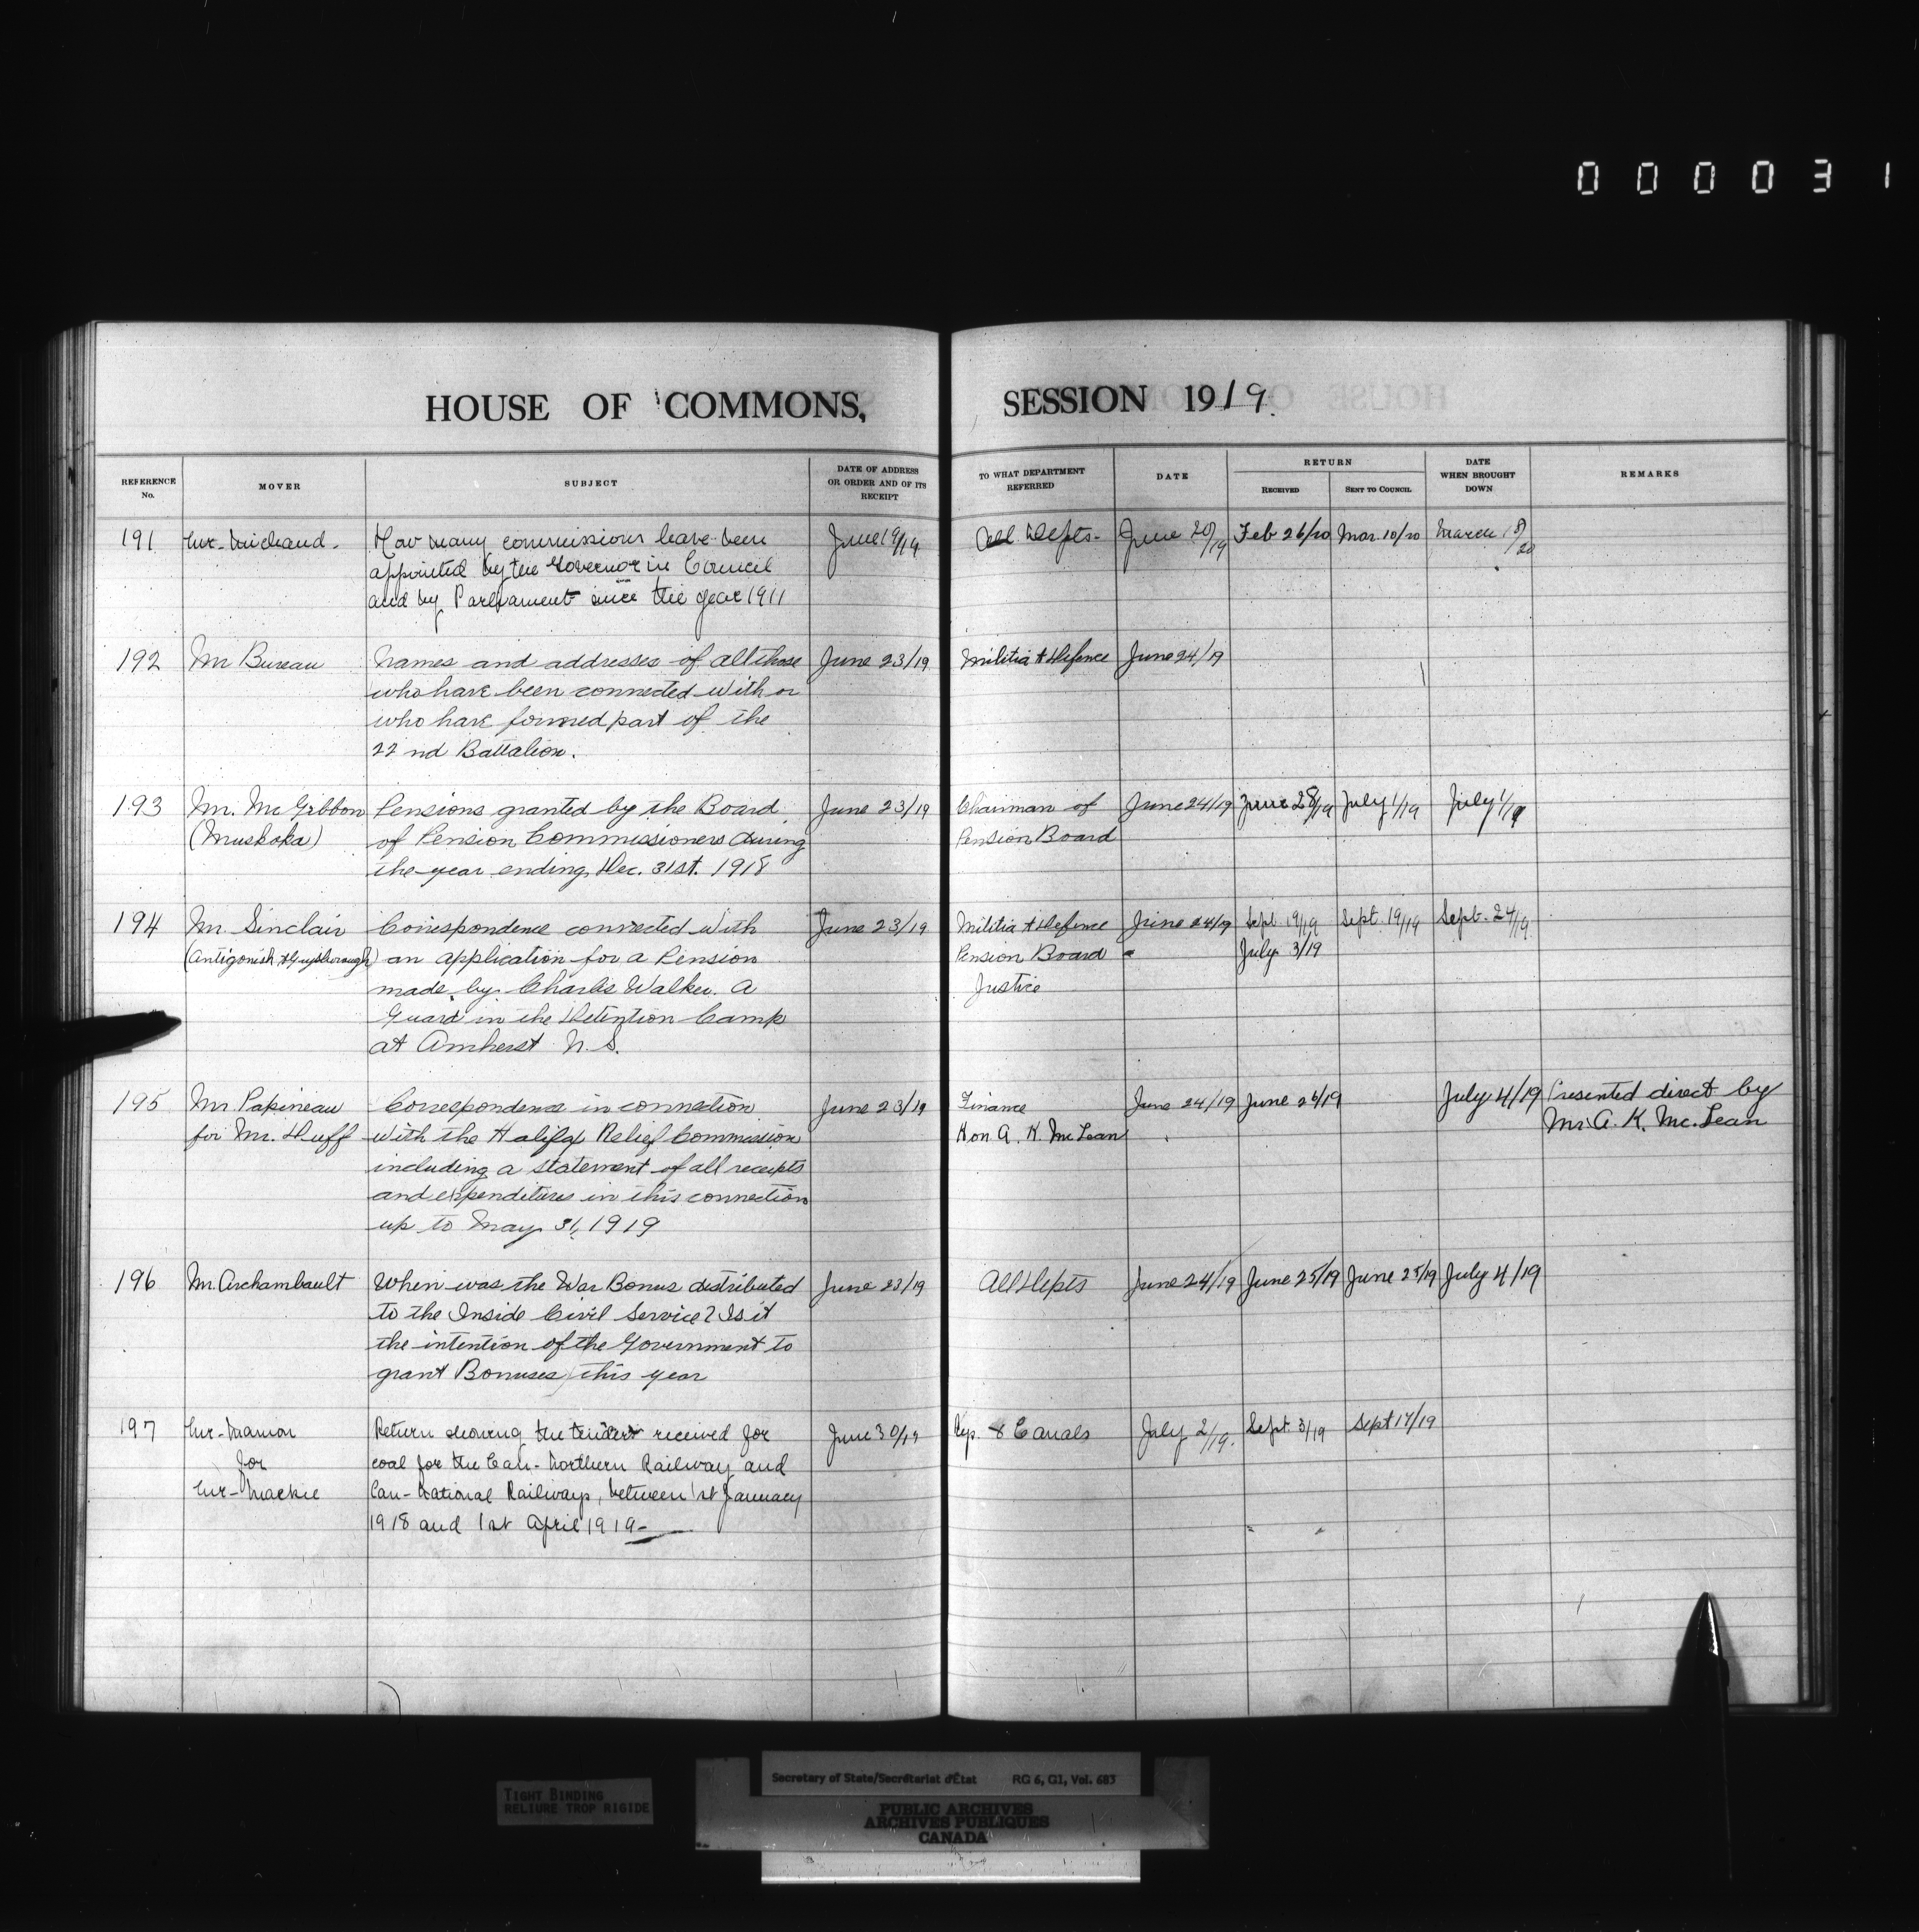 000031
HOUSE OF COMMONS, SESSION 1919.
REFERENCE No. MOVER SUBJECT DATE OF ADDRESS OR ORDER AND OF ITS RECEIPT TO WHAT DEPARTMENT REFERRED DATE RETURN RECEIVED SENT TO COUNCIL DATE WHEN BROUGHT DOWN REMARKS
191 Mr. Michaud. How many commissions have been June 19/19 All Depts. June 20/19 Feb 26/20 Mar. 10/20 March 18/20
appointed by the Governor in Council
and by Parliament since the year 1911
192 Mr Bureau Names and addresses of all those June 23/19 Militia & Defence June 24/19
who have been connected with or
who have formed part of the
22nd Battalion.
193 Mr. McGibbon Pensions granted by the Board June 23/19 Chairman of June 24/19 June 28/19 July 1/19 July 1/19
(Muskoka) of Pension Commissioners during Pension Board
the year ending, Dec. 31st. 1918
194 Mr. Sinclair Correspondence connected with June 23/19 Militia & Defence June 24/19 Sept 19/19 Sept. 19/19 Sept. 24/19
(Antigonish & Guysborough) an application for a Pension Pension Board " July 3/19
made by Charles Walker. A Justice
Guard in the Detention Camp
at Amherst N.S.
195 Mr Papineau Correspondence in connection June 23/19 Finance June 24/19 June 26/19 July 4/19 Presented direct by
for Mr. Duff with the Halifax Relief Commission Hon A. K. McLean Mr. A. K. Mc.Lean
including a statement of all receipts
and expenditures in this connection
up to May 31, 1919
196 Mr. Archambault When was the War Bonus distributed June 23/19 All Depts June 24/19 June 25/19 June 25/19 July 4/19
to the Inside Civil Service? Is it
the intention of the Government to
grant Bonuses this year
197 Mr. Manion Return showing the tenders received for June 30/19 Rys. & Canals July 2/19. Sept. 3/19 Sept 17/19
for coal for the Can. Northern Railway and
Mr. Mackie Can. National Railways, between 1st January
1918 and 1st April 1919
TIGHT BINDING
RELIURE TROP RIGIDE
Secretary of State/Secrétariat d'État RG 6, G1, Vol. 683
PUBLIC ARCHIVES
ARCHIVES PUBLIQUES
CANADA